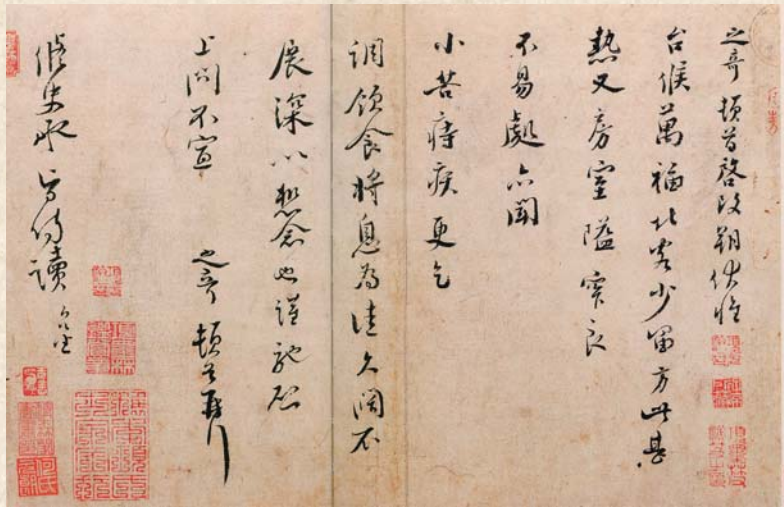 之奇頓首啓改朔伏惟
台候萬福北客少留方此甚
熱又房室隘窄良
不易處亦聞
小苦痔疾更乞
調飲食將息為佳久闊不
展深以想念也謹馳啓
上問不宣 之奇頓首再拜
修史承旨侍讀台坐